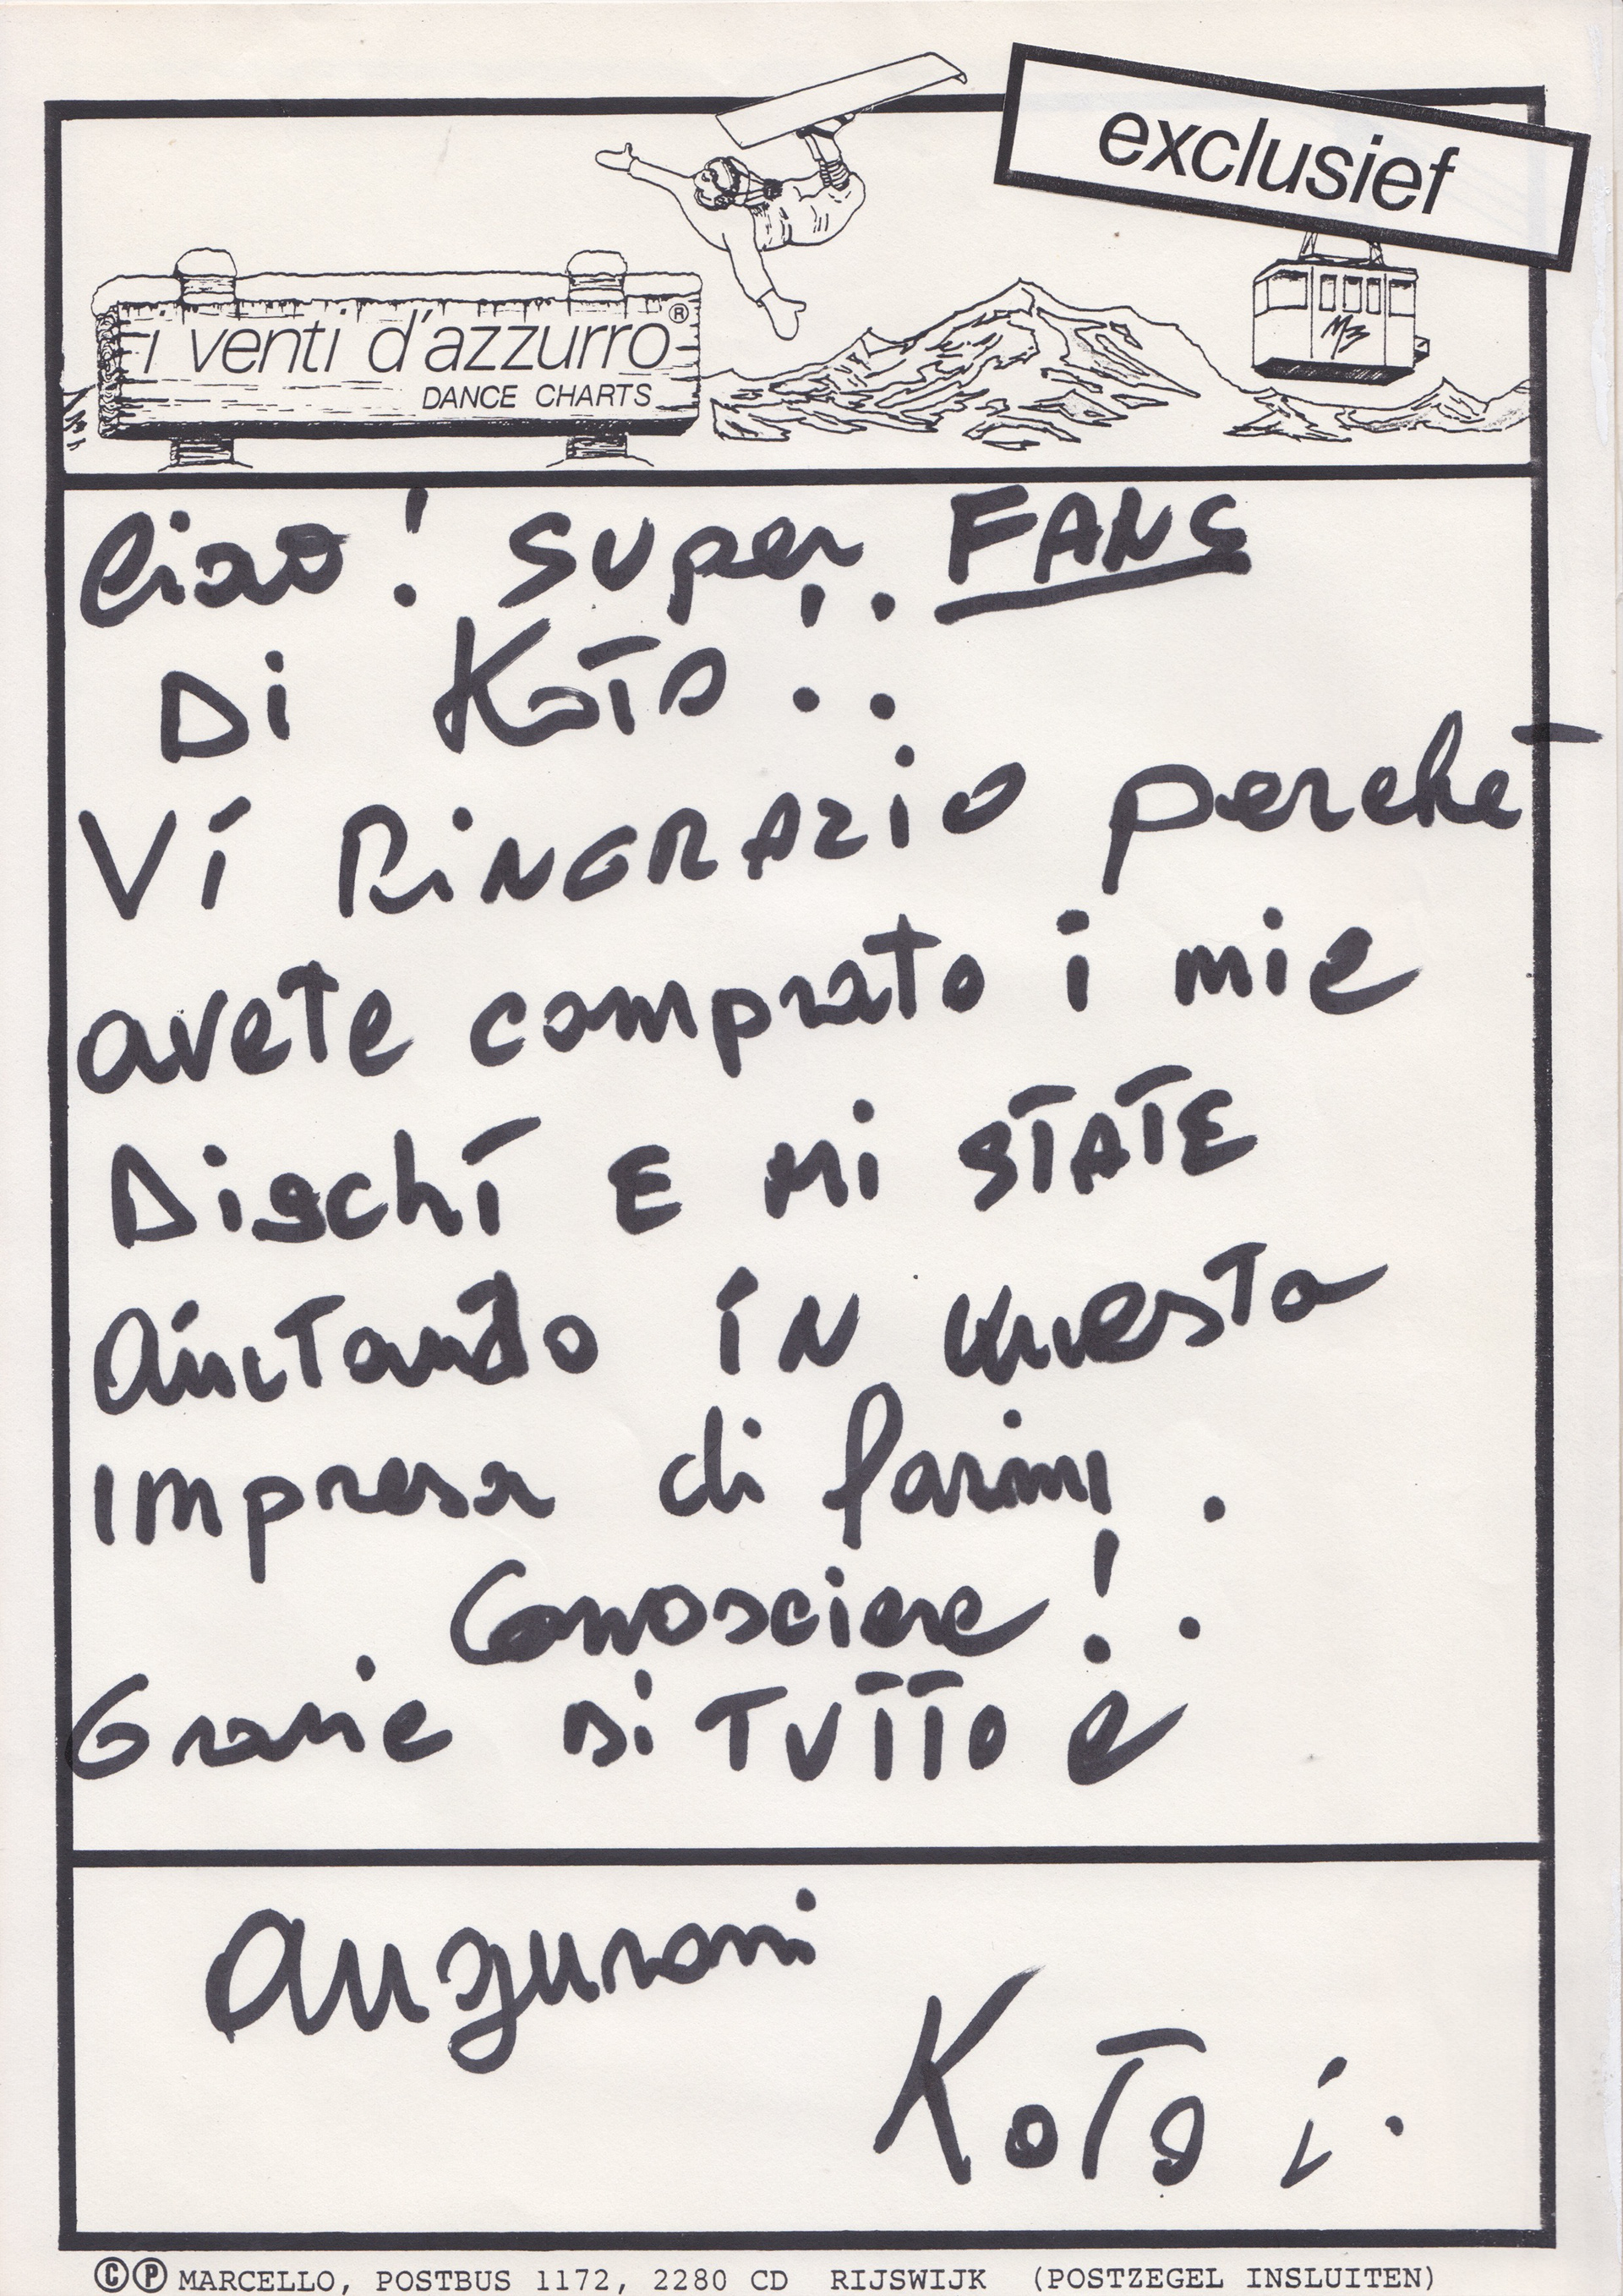 exclusief
i venti d'azzurro®
DANCE CHARTS
M3
Ciao! super.. FANS
Di Koto..
Vi RiNGRAZio perchè
avete comprato i mie
Dischi E Mi STATE
aiutando iN questa
impresa di farmi.
Conosciere!.
Grazie Di TUTTO e
auguroni
Koto i.
©Ⓟ MARCELLO, POSTBUS 1172, 2280 CD RIJSWIJK (POSTZEGEL INSLUITEN)